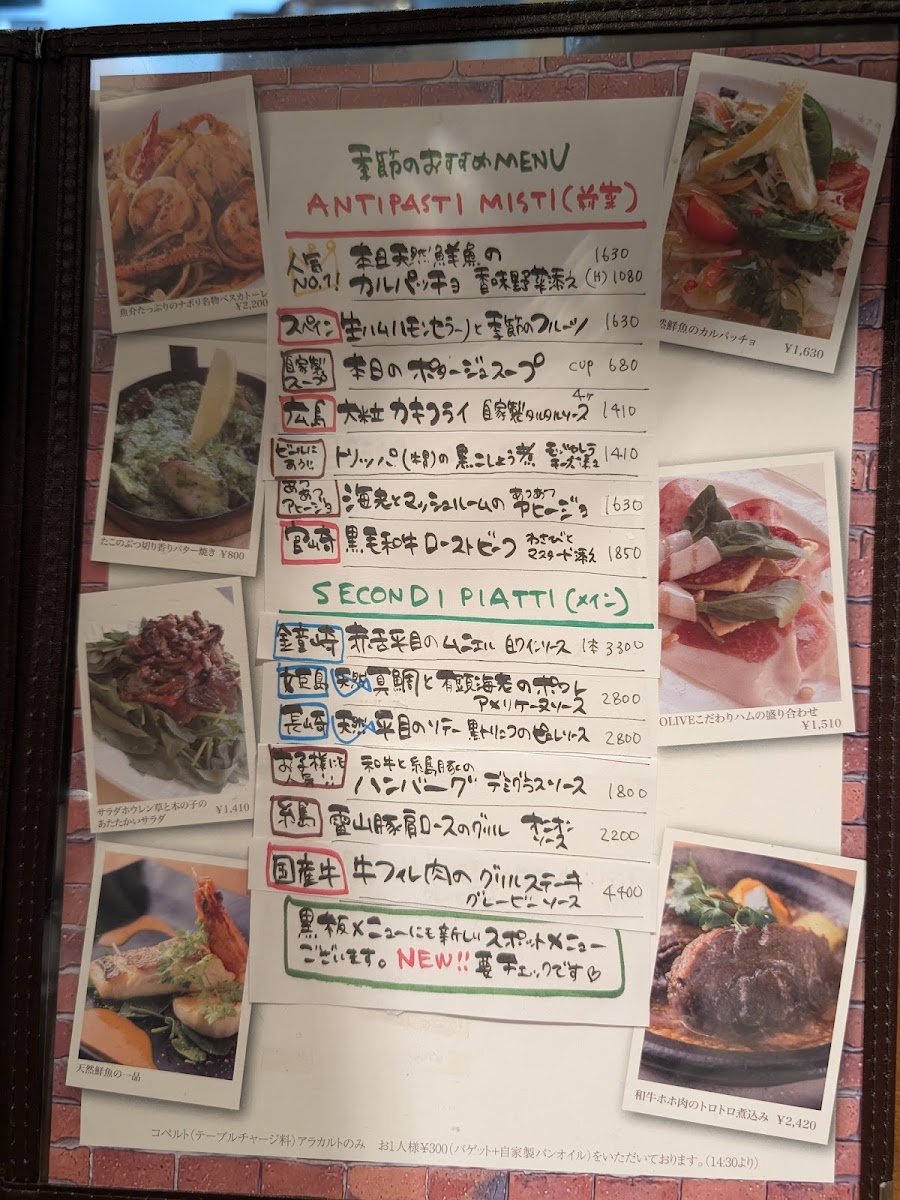 季節のおすすめMENU
ANTIPASTI MISTI(前菜)
人気NO.1!
本日天然鮮魚の 1630
カルパッチョ 香味野菜添え (H) 1080
スペイン 生ハム(ハモンセラーノ)と季節のフルーツ 1630
自家製スープ 本日のポタージュスープ cup 680
広島 大粒カキフライ 自家製タルタルソース 4ヶ 1410
ビールにあう!! トリッパ(牛胃)の黒こしょう煮 モッツァレラチーズ添え 1410
あつあつアヒージョ 海老とマッシュルームのあつあつアヒージョ 1630
宮崎 黒毛和牛ローストビーフ わさびとマスタード添え 1850
SECONDI PIATTI(メイン)
鐘崎 赤舌平目のムニエル 白ワインソース 1本 3300
女豆島 天然真鯛と有頭海老のポワレ
アメリケーヌソース 2800
長崎 天然平目のソテー 黒トリュフの塩レソース 2800
お子様にも人気!! 和牛と糸島豚の
ハンバーグ デミグラスソース 1800
糸島 雷山豚肩ロースのグリル オニオンソース 2200
国産牛 牛フィレ肉のグリルステーキ
グレービーソース 4400
黒板メニューにも新しいスポットメニュー
ございます。NEW!! 要チェックです♡
魚介たっぷりのナポリ名物ペスカトーレ
¥2,200
たこのぶつ切り香りバター焼き ¥800
サラダホウレン草と木の子の
あたたかいサラダ ¥1,410
天然鮮魚の一品
然鮮魚のカルパッチョ ¥1,630
OLIVEこだわりハムの盛り合わせ
¥1,510
和牛ホホ肉のトロトロ煮込み ¥2,420
コペルト(テーブルチャージ料)アラカルトのみ お1人様¥300(バゲット+自家製パンオイル)をいただいております。(14:30より)